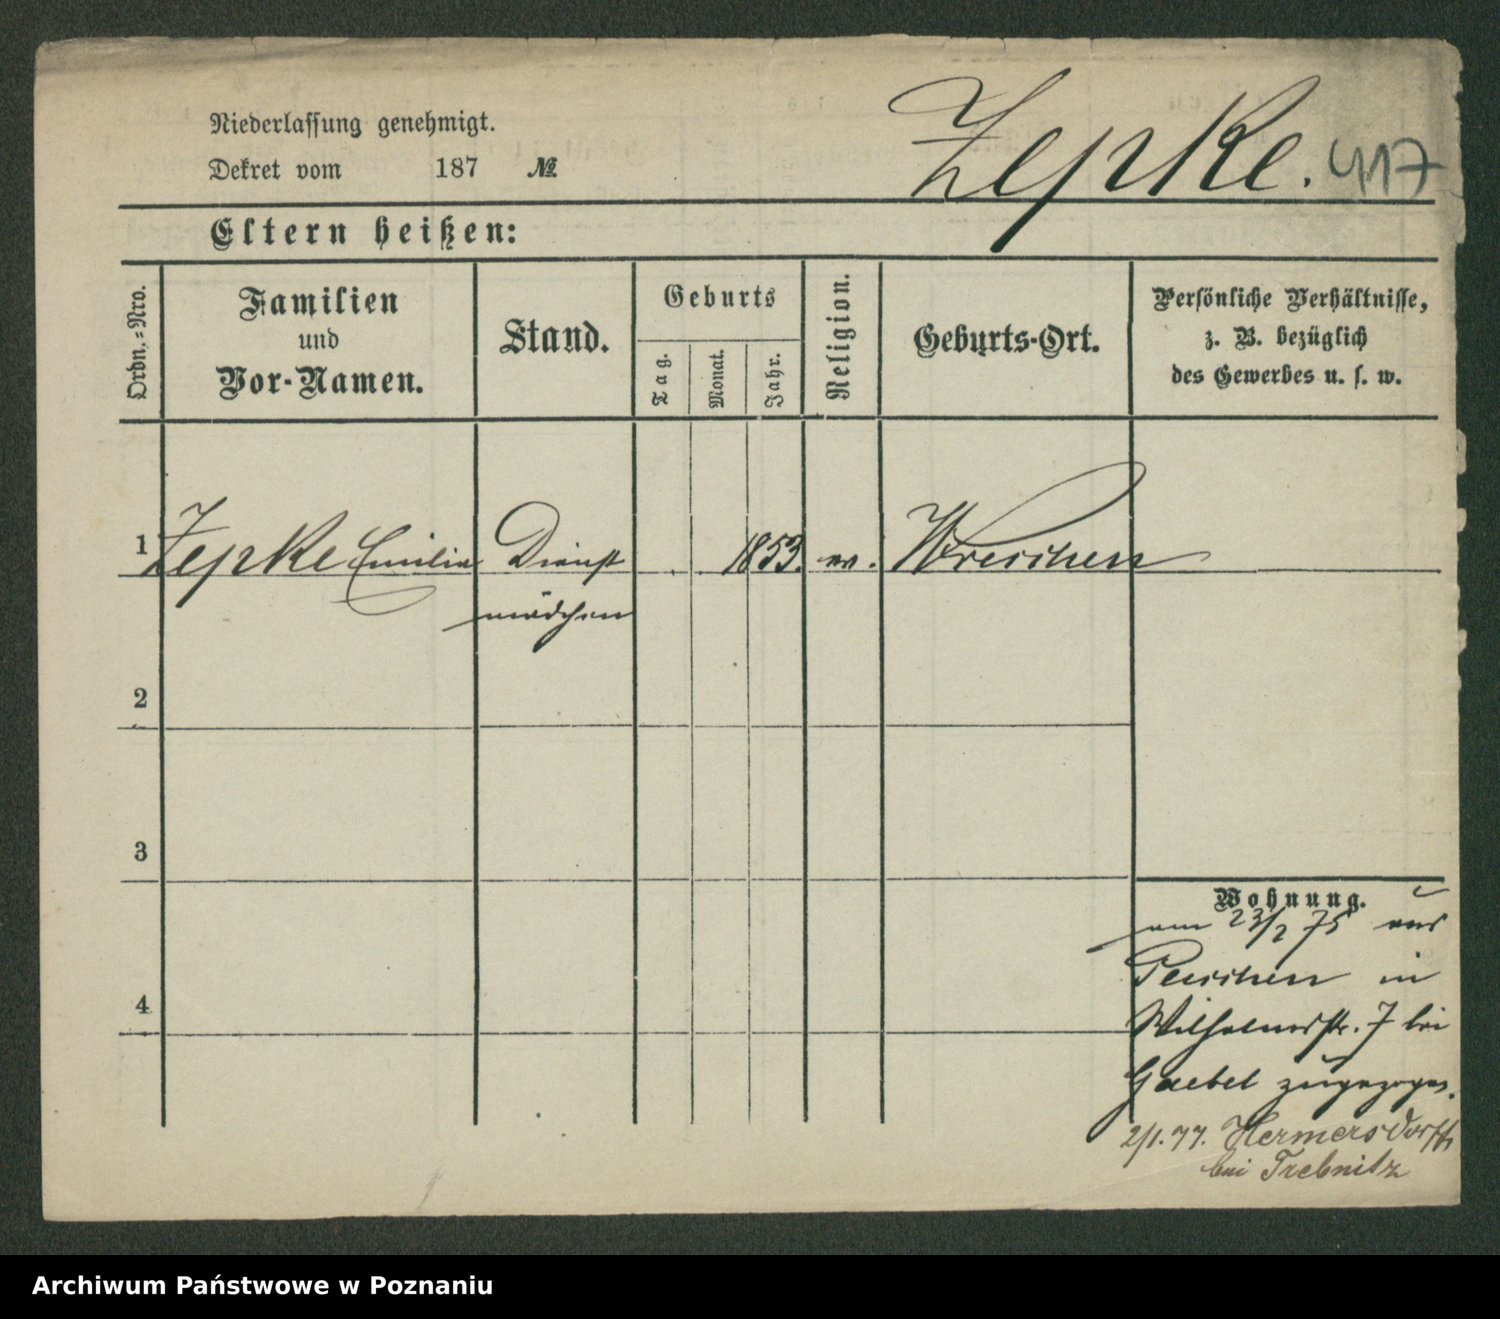 Niederlassung genehmigt.
Dekret vom 187 №
Zepke. 417
Eltern heißen:
Ordn.-Nro.
Familien
und
Vor-Namen.
Stand.
Geburts
Tag.
Monat.
Jahr.
Religion.
Geburts-Ort.
Persönliche Verhältnisse,
z. B. bezüglich
des Gewerbes u. s. w.
1 Zepke Emilie Dienst 1853. ev. Wreschen
mädchen
2
3
4
Wohnung.
am 23/2 75 aus
in
Wilhelmsstr. 7 bei
Gaebel zugezogen.
2/1. 77. Hermersdorff
bei Trebnitz
Archiwum Państwowe w Poznaniu